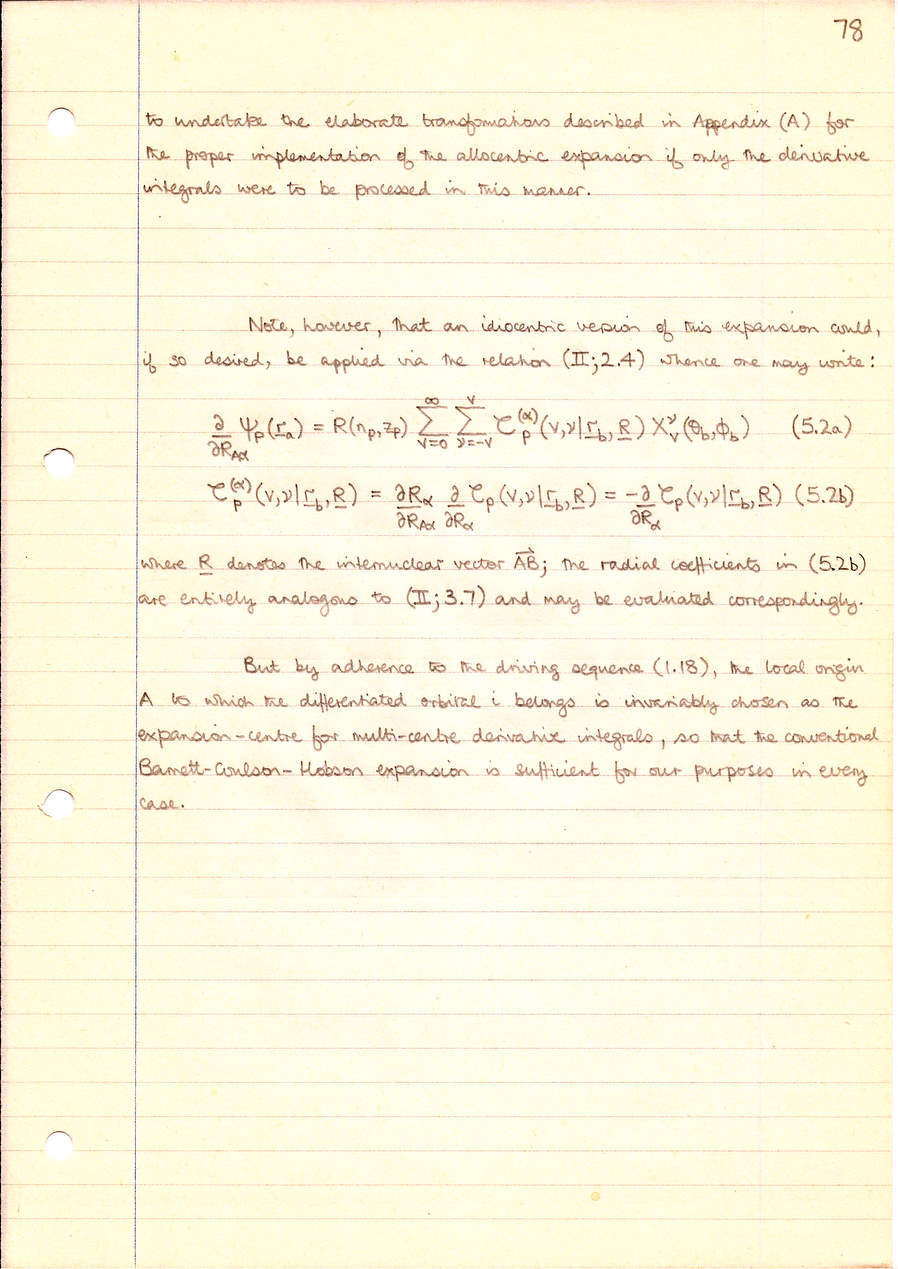 78
to undertake the elaborate transformations described in Appendix (A) for
the proper implementation of the allocentric expansion if only the derivative
integrals were to be processed in this manner.
Note, however, that an idiocentric version of this expansion could,
if so desired, be applied via the relation (II;2.4) whence one may write:
∂/∂R_Aα ψ_p(r_a) = R(n_p,z_p) ∑_{v=0}^{∞} ∑_{ν=-v}^{v} τ_p^{(α)}(v,ν|r_b,R) X_v^ν(θ_b,ϕ_b) (5.2a)
τ_p^{(α)}(v,ν|r_b,R) = ∂R_α/∂R_Aα ∂/∂R_α τ_p(v,ν|r_b,R) = -∂/∂R_α τ_p(v,ν|r_b,R) (5.2b)
where R denotes the internuclear vector AB; the radial coefficients in (5.2b)
are entirely analogous to (II;3.7) and may be evaluated correspondingly.
But by adherence to the driving sequence (1.18), the local origin
A to which the differentiated orbital i belongs is invariably chosen as the
expansion-centre for multi-centre derivative integrals, so that the conventional
Barnett-Coulson-Hobson expansion is sufficient for our purposes in every
case.